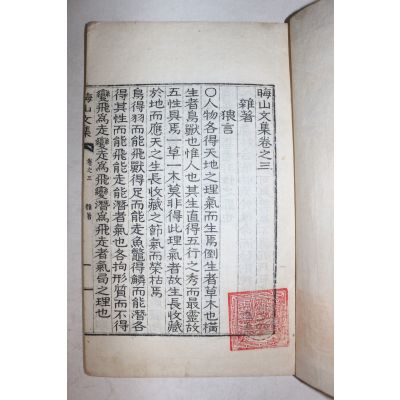 晦山文集卷之三
雜著
猥言
○人物各得天地之理氣而生焉倒生者草木也橫
生者鳥獸也惟人也其生直得五行之秀而最靈故
五性具焉一草一木莫非得此理氣者故生長收藏
於地而應天之生長收藏之節氣而榮枯焉
鳥得羽而能飛獸得足而能走魚鼈得鱗而能潛各
得其性而能飛能走能潛者氣也各拘形質而不得
變飛爲走變走爲飛變潛爲飛走者氣局之理也
晦山文集
卷之三
雜著
一